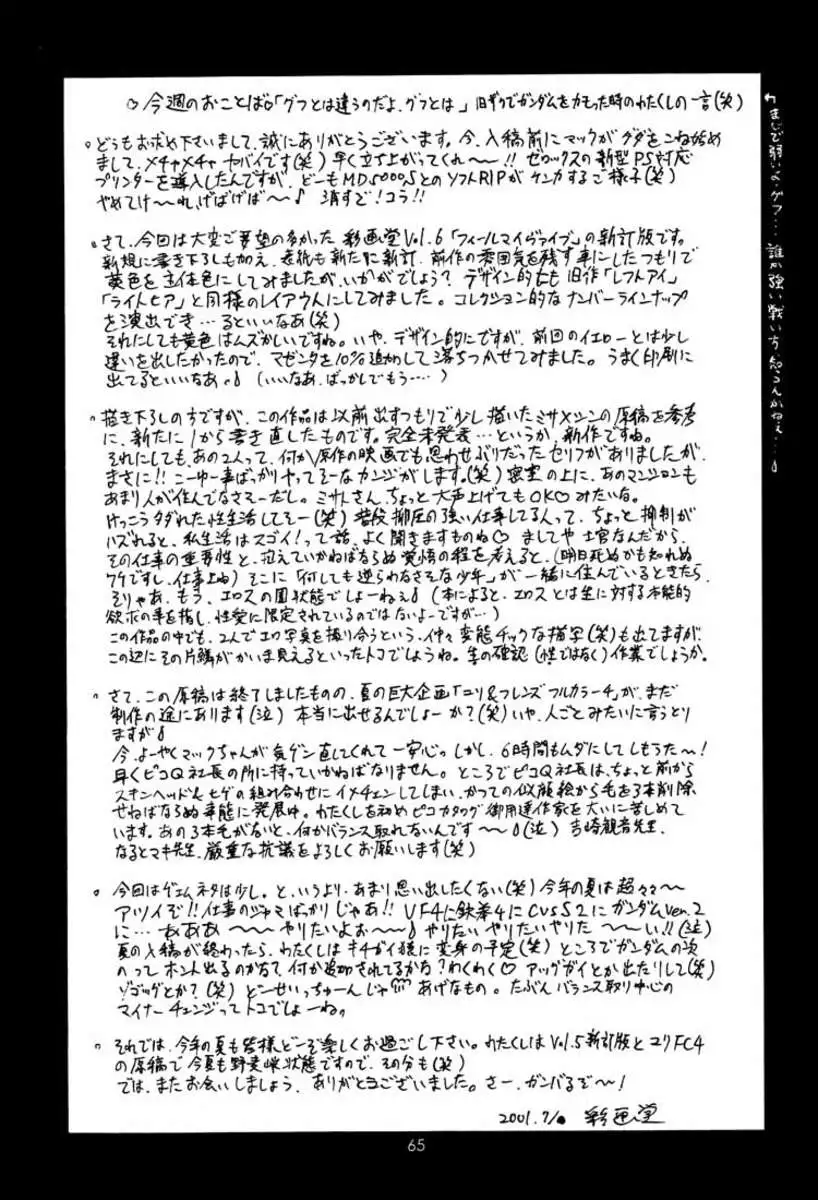 ○今週のおことば。「グフとは違うのだよ、グフとは」旧ザクでガンダムをカモった時のわたくしの一言(笑)
。どうもお求め下さいまして、誠にありがとうございます。今、入稿前にマックがグダをこね始め
まして、メチャメチャヤバイです(笑)早く立ち上がってくれ〜〜!!ゼロックスの新型PS対応
プリンターを導入したんですが、どーもMD5000SとのソフトRIPがケンカするご様子(笑)
やめてけ〜れ、げばげば〜♪ 消すで!コラ!!
。さて、今回は大変ご要望の多かった彩画堂Vol.6「フィールマイヴァイブ」の新訂版です。
新規に書き下ろしも加え、表紙も新たに新訂、前作の雰囲気を残す事にしたつもりで
黄色を主体色にしてみましたが、いかがでしょう?デザイン的にも旧作「レフトアイ」
「ライトヒア」と同様のレイアウトにしてみました。コレクション的なナンバーラインナップ
を演出でき…るといいなあ(笑)
それにしても黄色はムズかしいですね。いや、デザイン的にですが、前回のイエローとは少し
違いを出したかったので、マゼンタを10%追加して落ちつかせてみました。うまく印刷に
出てるといいなあ。♪(いいなあ、ばっかしでもう…)
。描き下ろしの方ですが、この作品は以前出すつもりで少し描いたミサ×シンの原稿を参考
に、新たに1から書き直したものです。完全未発表…というか、新作ですね。
それにしても、あの2人って、何か原作の映画でも思わせぶりだったセリフがありましたが、
まさに!!こーゆー事ばっかりヤってそーなカンジがします。(笑)密室の上に、あのマンションも
あまり人が住んでなさそーだし。ミサトさん、ちょっと大声上げてもOK♡みたいな。
けっこうタダれた性生活してそー(笑)普段抑圧の強い仕事してる人って、ちょっと抑制が
ハズれると、私生活はスゴイ!って話、よく聞きますものね♡ましてや士官なんだから、
その仕事の重要性と、抱えていかねばならぬ覚悟の程を考えると、(明日死ぬかも知れぬ
ワケですし、仕事上ね)そこに「何しても逆らわなさそな少年」が一緒に住んでいるときたら、
そりゃあ、もう、エロスの園状態でしょーねぇ♪(本によると、エロスとは生に対する本能的
欲求の事を指し、性愛に限定されているのではないよーですが…)
この作品の中でも、2人でエロ写真を撮り合うという、仲々変態チックな描写(笑)も出てますが、
この辺にその片鱗がかいま見えるといったトコでしょうね。生の確認(性ではなく)作業でしょうか。
。さて、この原稿は終了しましたものの、夏の巨大企画「ユリ&フレンズフルカラー4」が、まだ
制作の途にあります(泣)本当に出せるんでしょーか?(笑)いや、人ごとみたいに言うとり
ますが♪
今、よーやくマックちゃんが気ゲン直してくれて一安心。しかし、6時間もムダにしてしもうた〜!
早くピコQ社長の所に持っていかねばなりません。ところでピコQ社長は、ちょっと前から
スキンヘッド&ヒゲの組み合わせにイメチェンしてしまい、かつての似顔絵から毛を3本削除
せねばならぬ事態に発展中。わたくしを初めピコカタログ御用達作家を大いに苦しめて
います。あの3本毛がないと、何かバランス取れないんです〜〜♪(泣)吉崎観音先生、
なるとマキ先生、厳重な抗議をよろしくお願いします(笑)
。今回はゲェムネタは少し。と、いうより、あまり思い出したくない(笑)今年の夏は超々々〜
アツイぞ!!仕事のジャマばっかりじゃあ!!VF4に鉄拳4にCVSS2にガンダムver.2
に…ああああ〜〜〜やりたいよぉ〜〜♪やりたいやりたいやりた〜〜い!!(泣)
夏の入稿が終わったら、わたくしはキチガイ猿に変身の予定(笑)ところでガンダムの次
のってホント出るのかな?何が追加されてるかな?わくわく♡アッグガイとか出たりして(笑)
ゾゴックとか?(笑)どーせいっちゅーんじゃ!!!あげなもの。たぶんバランス取り中心の
マイナーチェンジってトコでしょーね。
。それでは、今年の夏も皆様どーぞ楽しくお過ごし下さい。わたくしはVol.5新訂版とユリFC4
の原稿で今夏も野麦峠状態ですので、その分も(笑)
では、またお会いしましょう、ありがとうございました。さー、ガンバるぞ〜!
2001.7/ 彩画堂
まじで弱いよ、グフ…誰か強い戦い方、知らんかねぇ…♪
65